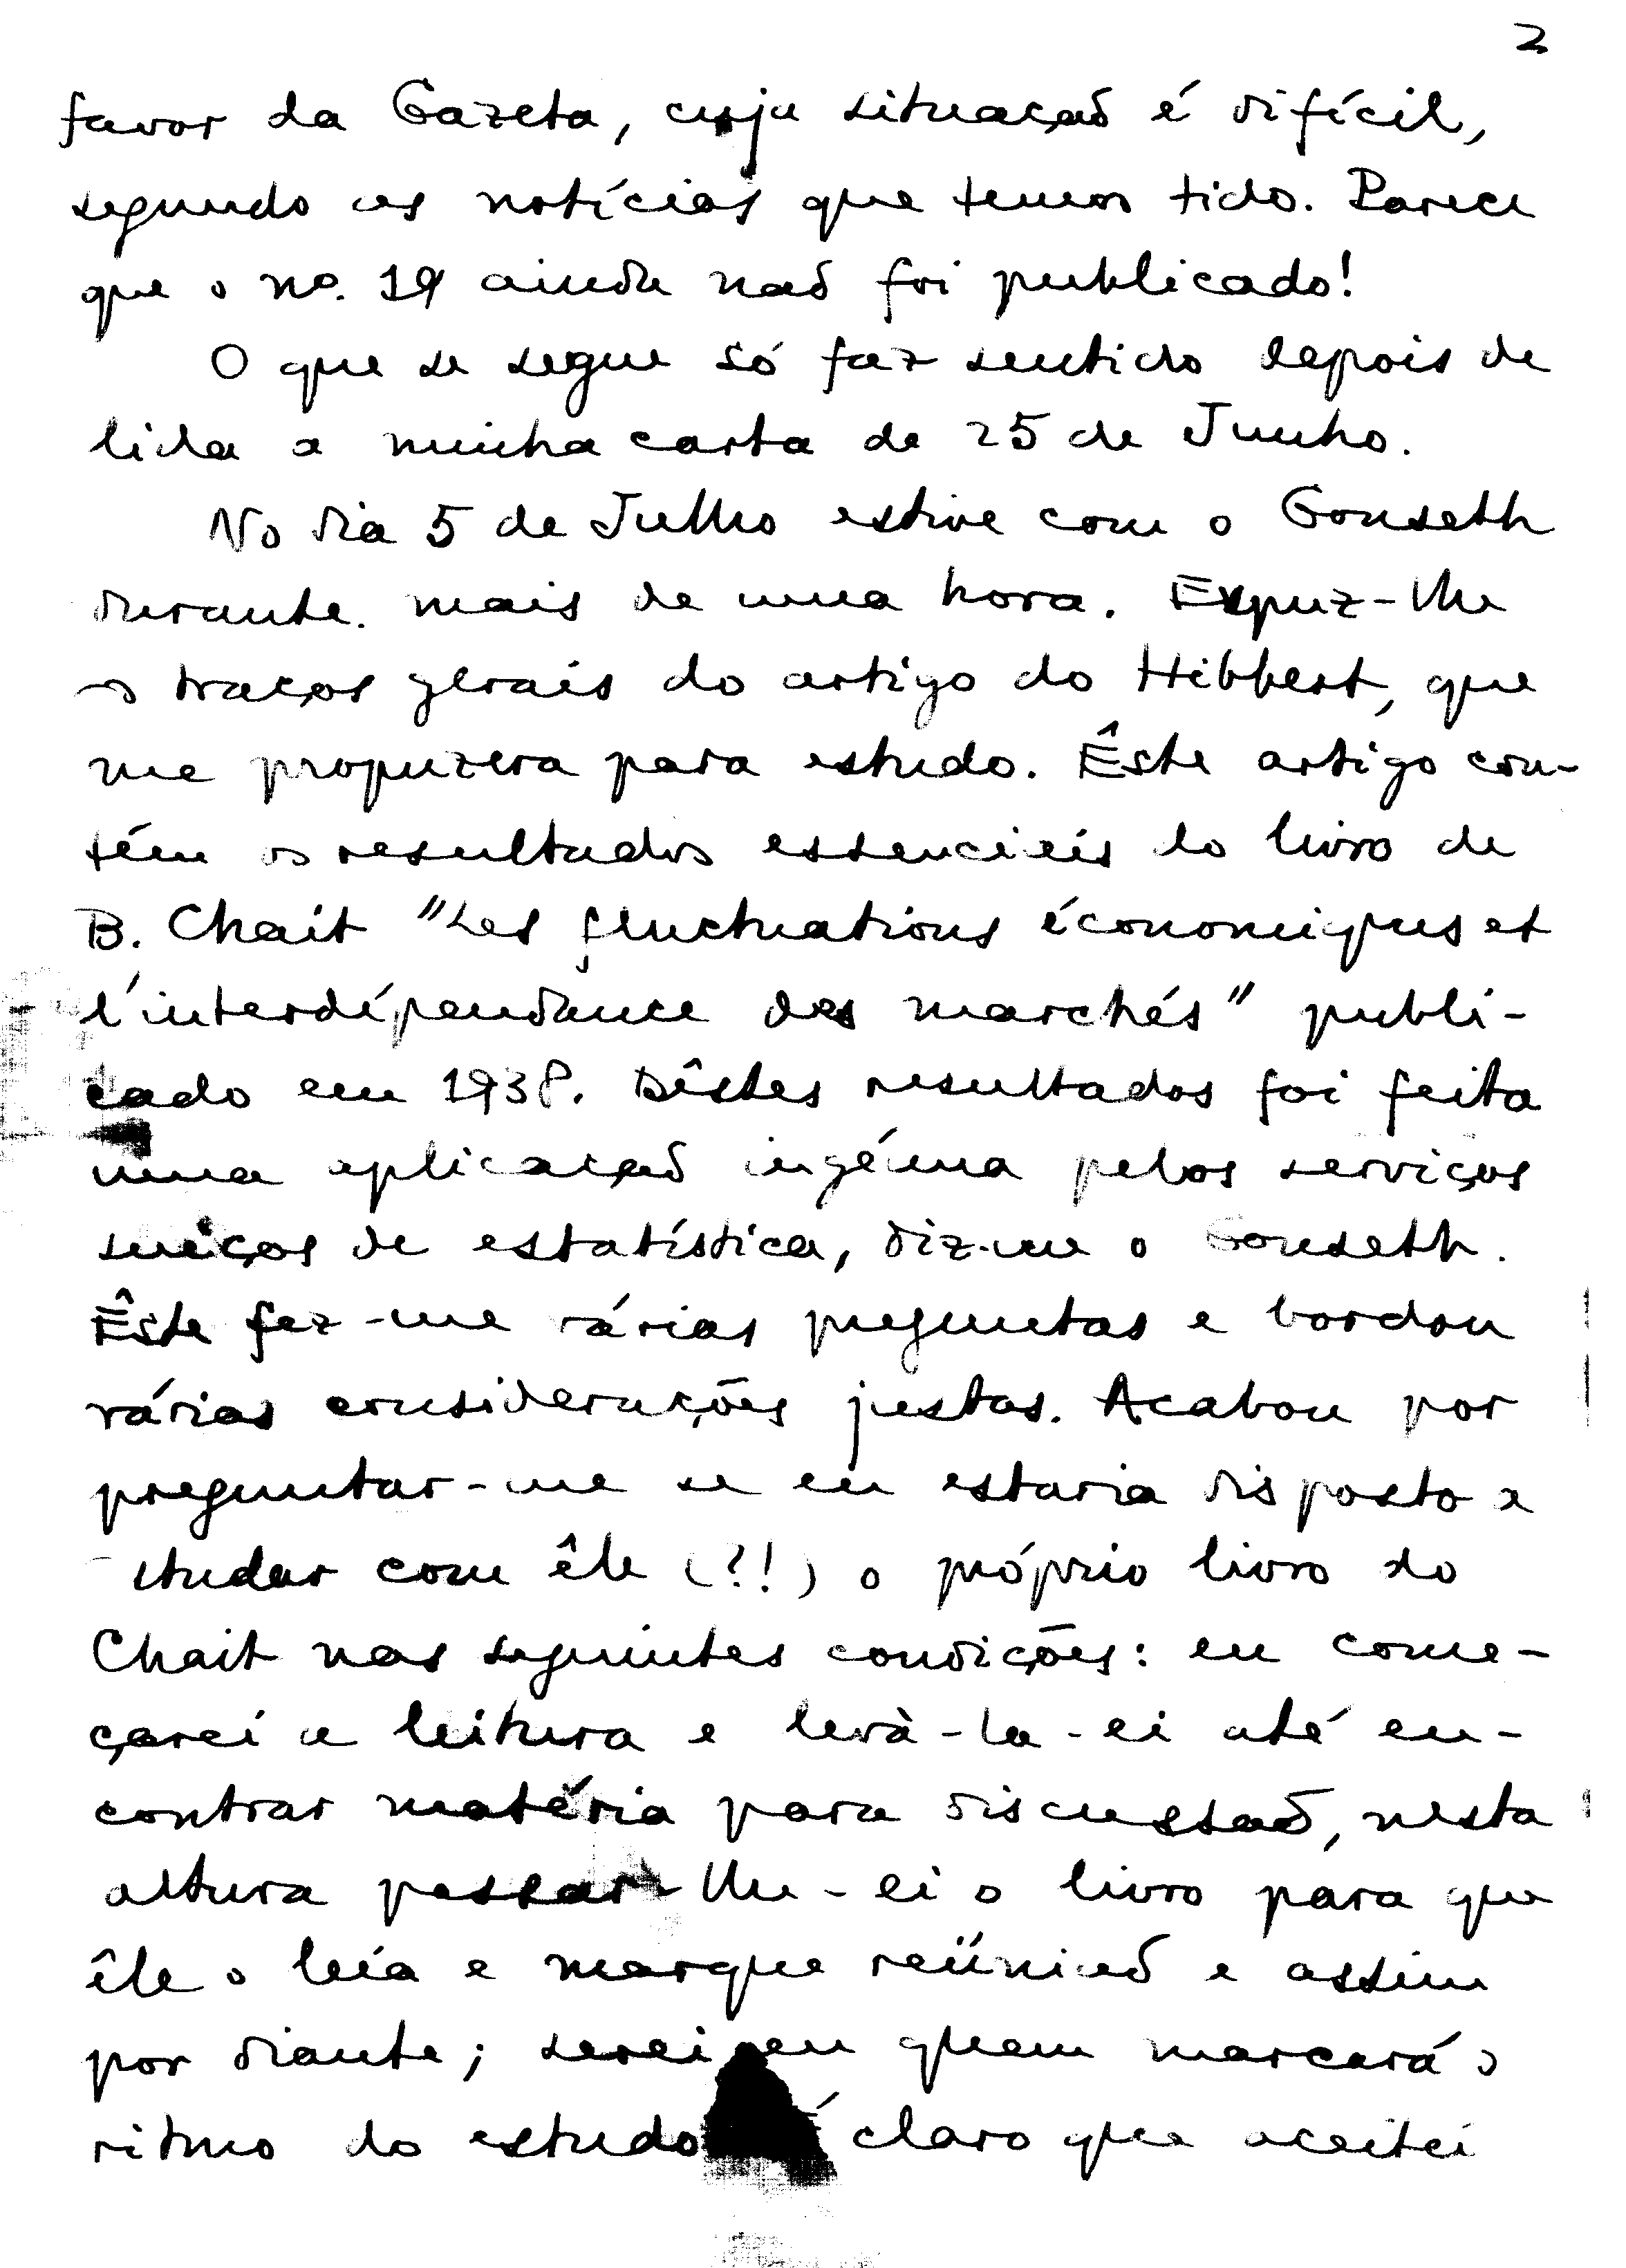 2
favor da Gazeta, cuja situação é difícil,
segundo as notícias que temos tido. Parece
que o nº. 19 ainda não foi publicado!
O que se segue só faz sentido depois de
lida a minha carta de 25 de Junho.
No dia 5 de Julho estive com o Gonseth
durante mais de uma hora. Expuz-lhe
os traços gerais do artigo do Hibbert, que
me propuzera para estudo. Êste artigo con-
tém os resultados essenciais do livro de
B. Chait "Les fluctuations économiques et
l'interdépendance des marchés" publi-
cado em 1938. Dêstes resultados foi feita
uma aplicação ingénua pelos serviços
suiços de estatística, diz-me o Gonseth.
Êste fez-me várias preguntas e bordou
várias considerações justas. Acabou por
preguntar-me se eu estaria disposto a
estudar com êle (?!) o próprio livro do
Chait nas seguintes condições: eu come-
çarei a leitura e levà-la-ei até en-
contrar matéria para discussão, nesta
altura passar-lhe-ei o livro para que
êle o leia e marque reünião e assim
por diante; serei eu quem marcará o
ritmo do estudo É claro que aceitei